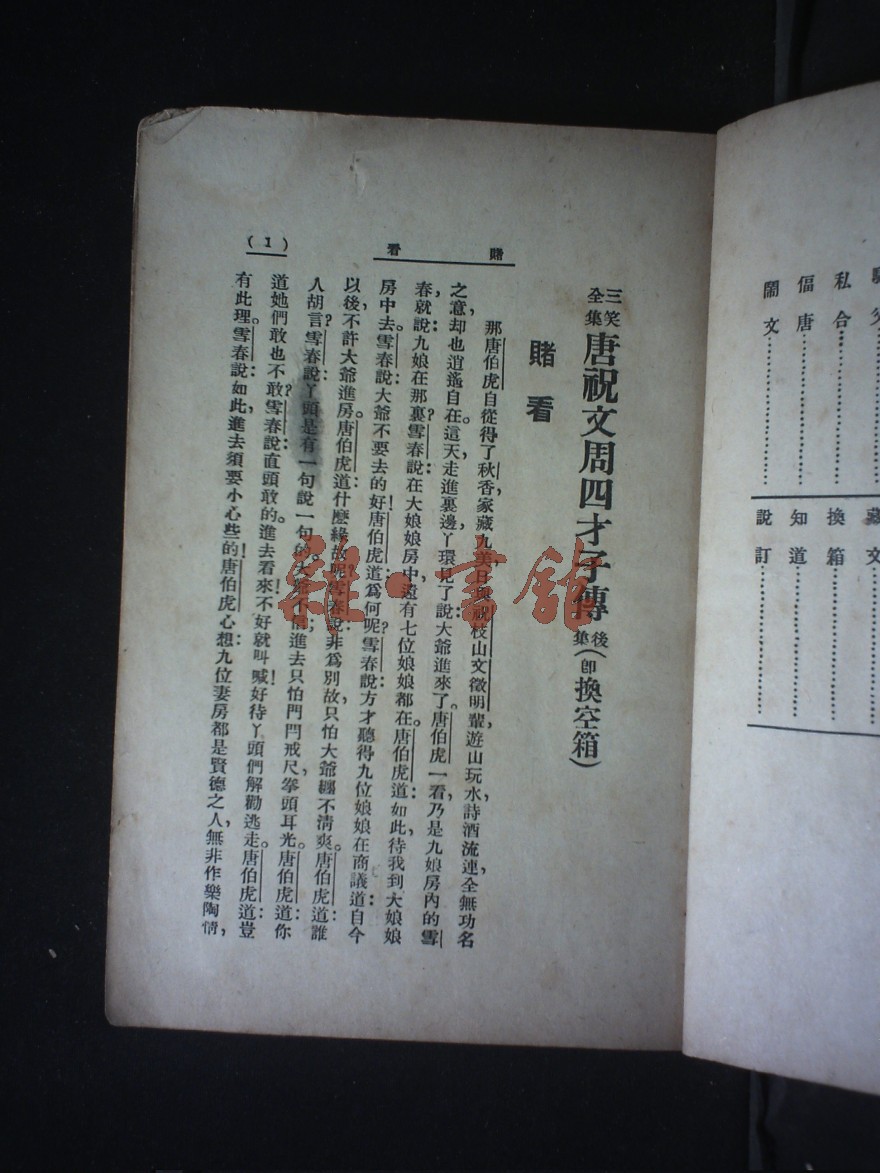 私合
偪唐
鬧文
藏文
換箱
知道
說訂
三笑全集唐祝文周四才子傳後集（卽換空箱）
賭看
賭看
那唐伯虎自從得了秋香，家藏九美，日與祝枝山文徵明輩，遊山玩水，詩酒流連，全無功名
之意，却也逍遙自在。這天走進裏邊，丫環見了說：大爺進來了。唐伯虎一看，乃是九娘房內的雪
春，就說：九娘在那裏？雪春說：在大娘娘房中，還有七位娘娘都在。唐伯虎道：如此，待我到大娘娘
房中去。雪春說：大爺不要去的好！唐伯虎道：爲何呢？雪春說：方才聽得九位娘娘在商議道：自今
以後，不許大爺進房。唐伯虎道：什麼緣故呢？雪春說：非爲別故，只怕大爺纏不淸爽。唐伯虎道：誰
人胡言？雪春說：丫頭是有一句說一句的，大爺不信，進去只怕門閂戒尺，拳頭耳光。唐伯虎道：你
道她們敢也不敢？雪春說：直頭敢的。進去看來不好就叫喊！好待丫頭們解勸逃走。唐伯虎道：豈
有此理。雪春說：如此，進去須要小心些的！唐伯虎心想：九位妻房都是賢德之人，無非作樂陶情，
(1)
雜·書館